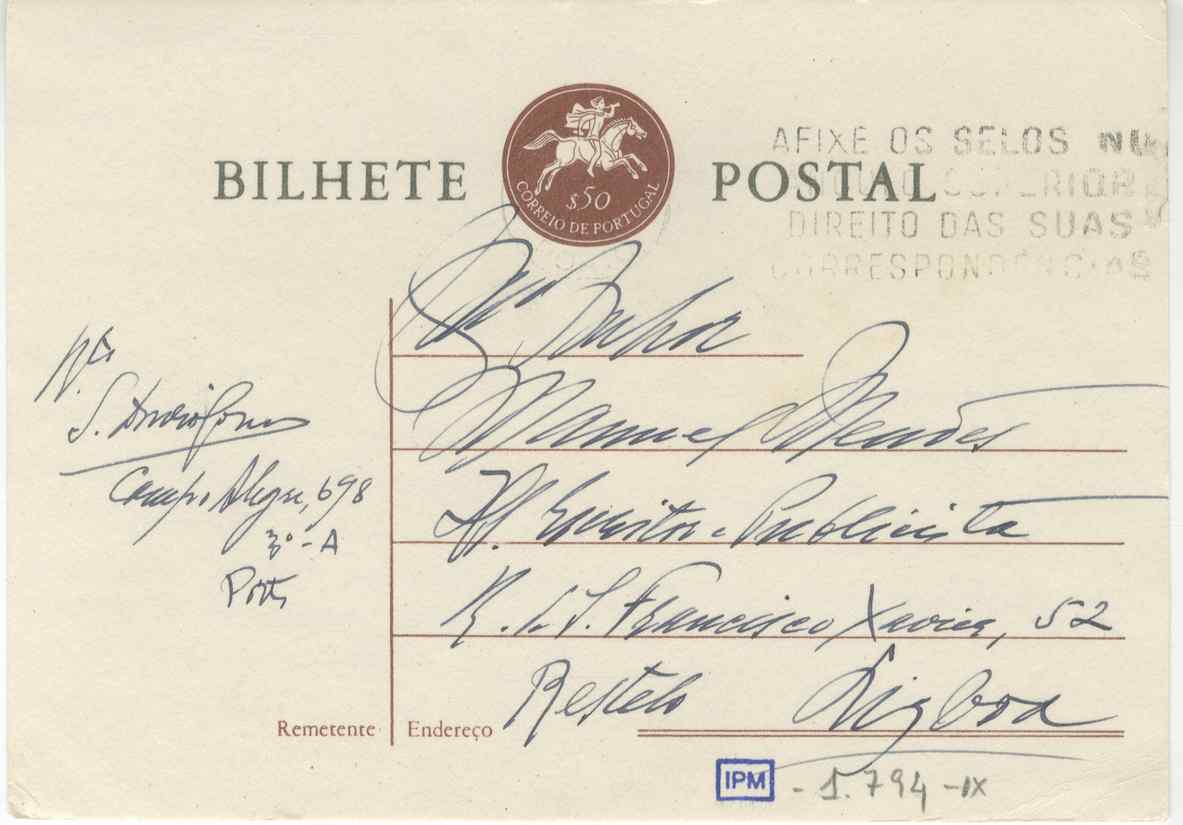 BILHETE POSTAL
$50
CORREIO DE PORTUGAL
AFIXE OS SELOS NO
SUPERIOR
DIREITO DAS SUAS
CORRESPONDÊNCIAS
Senhor
Manuel Mendes
Escritor e Publicista
R. de S. Francisco Xavier, 52
Restelo Lisboa
Campo Alegre, 698
3º-A
Porto
Remetente
Endereço
IPM - 1.794-IX